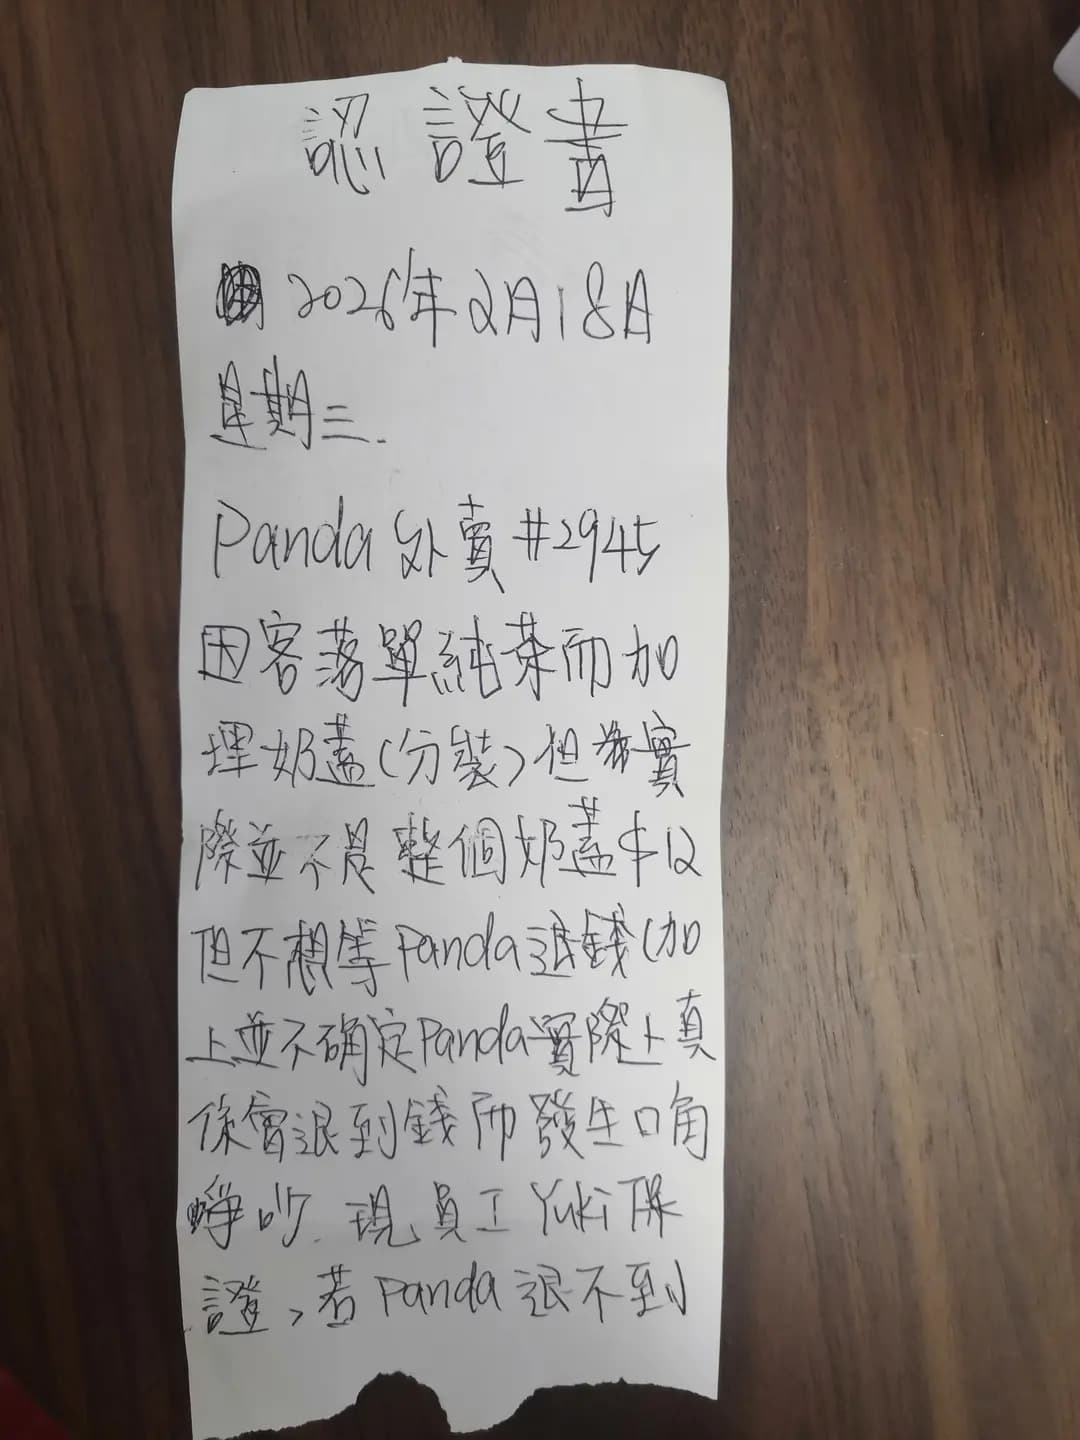 認證書
2026年2月18日
星期三.
Panda 外賣 #2945
因客落單純茶而加
埋奶蓋(分裝)但實
際並不是整個奶蓋$12
但不想等Panda退錢(加
上並不确定Panda實際上真
係會退到錢而發生口角
爭吵. 現員工Yuki保
證,若Panda退不到